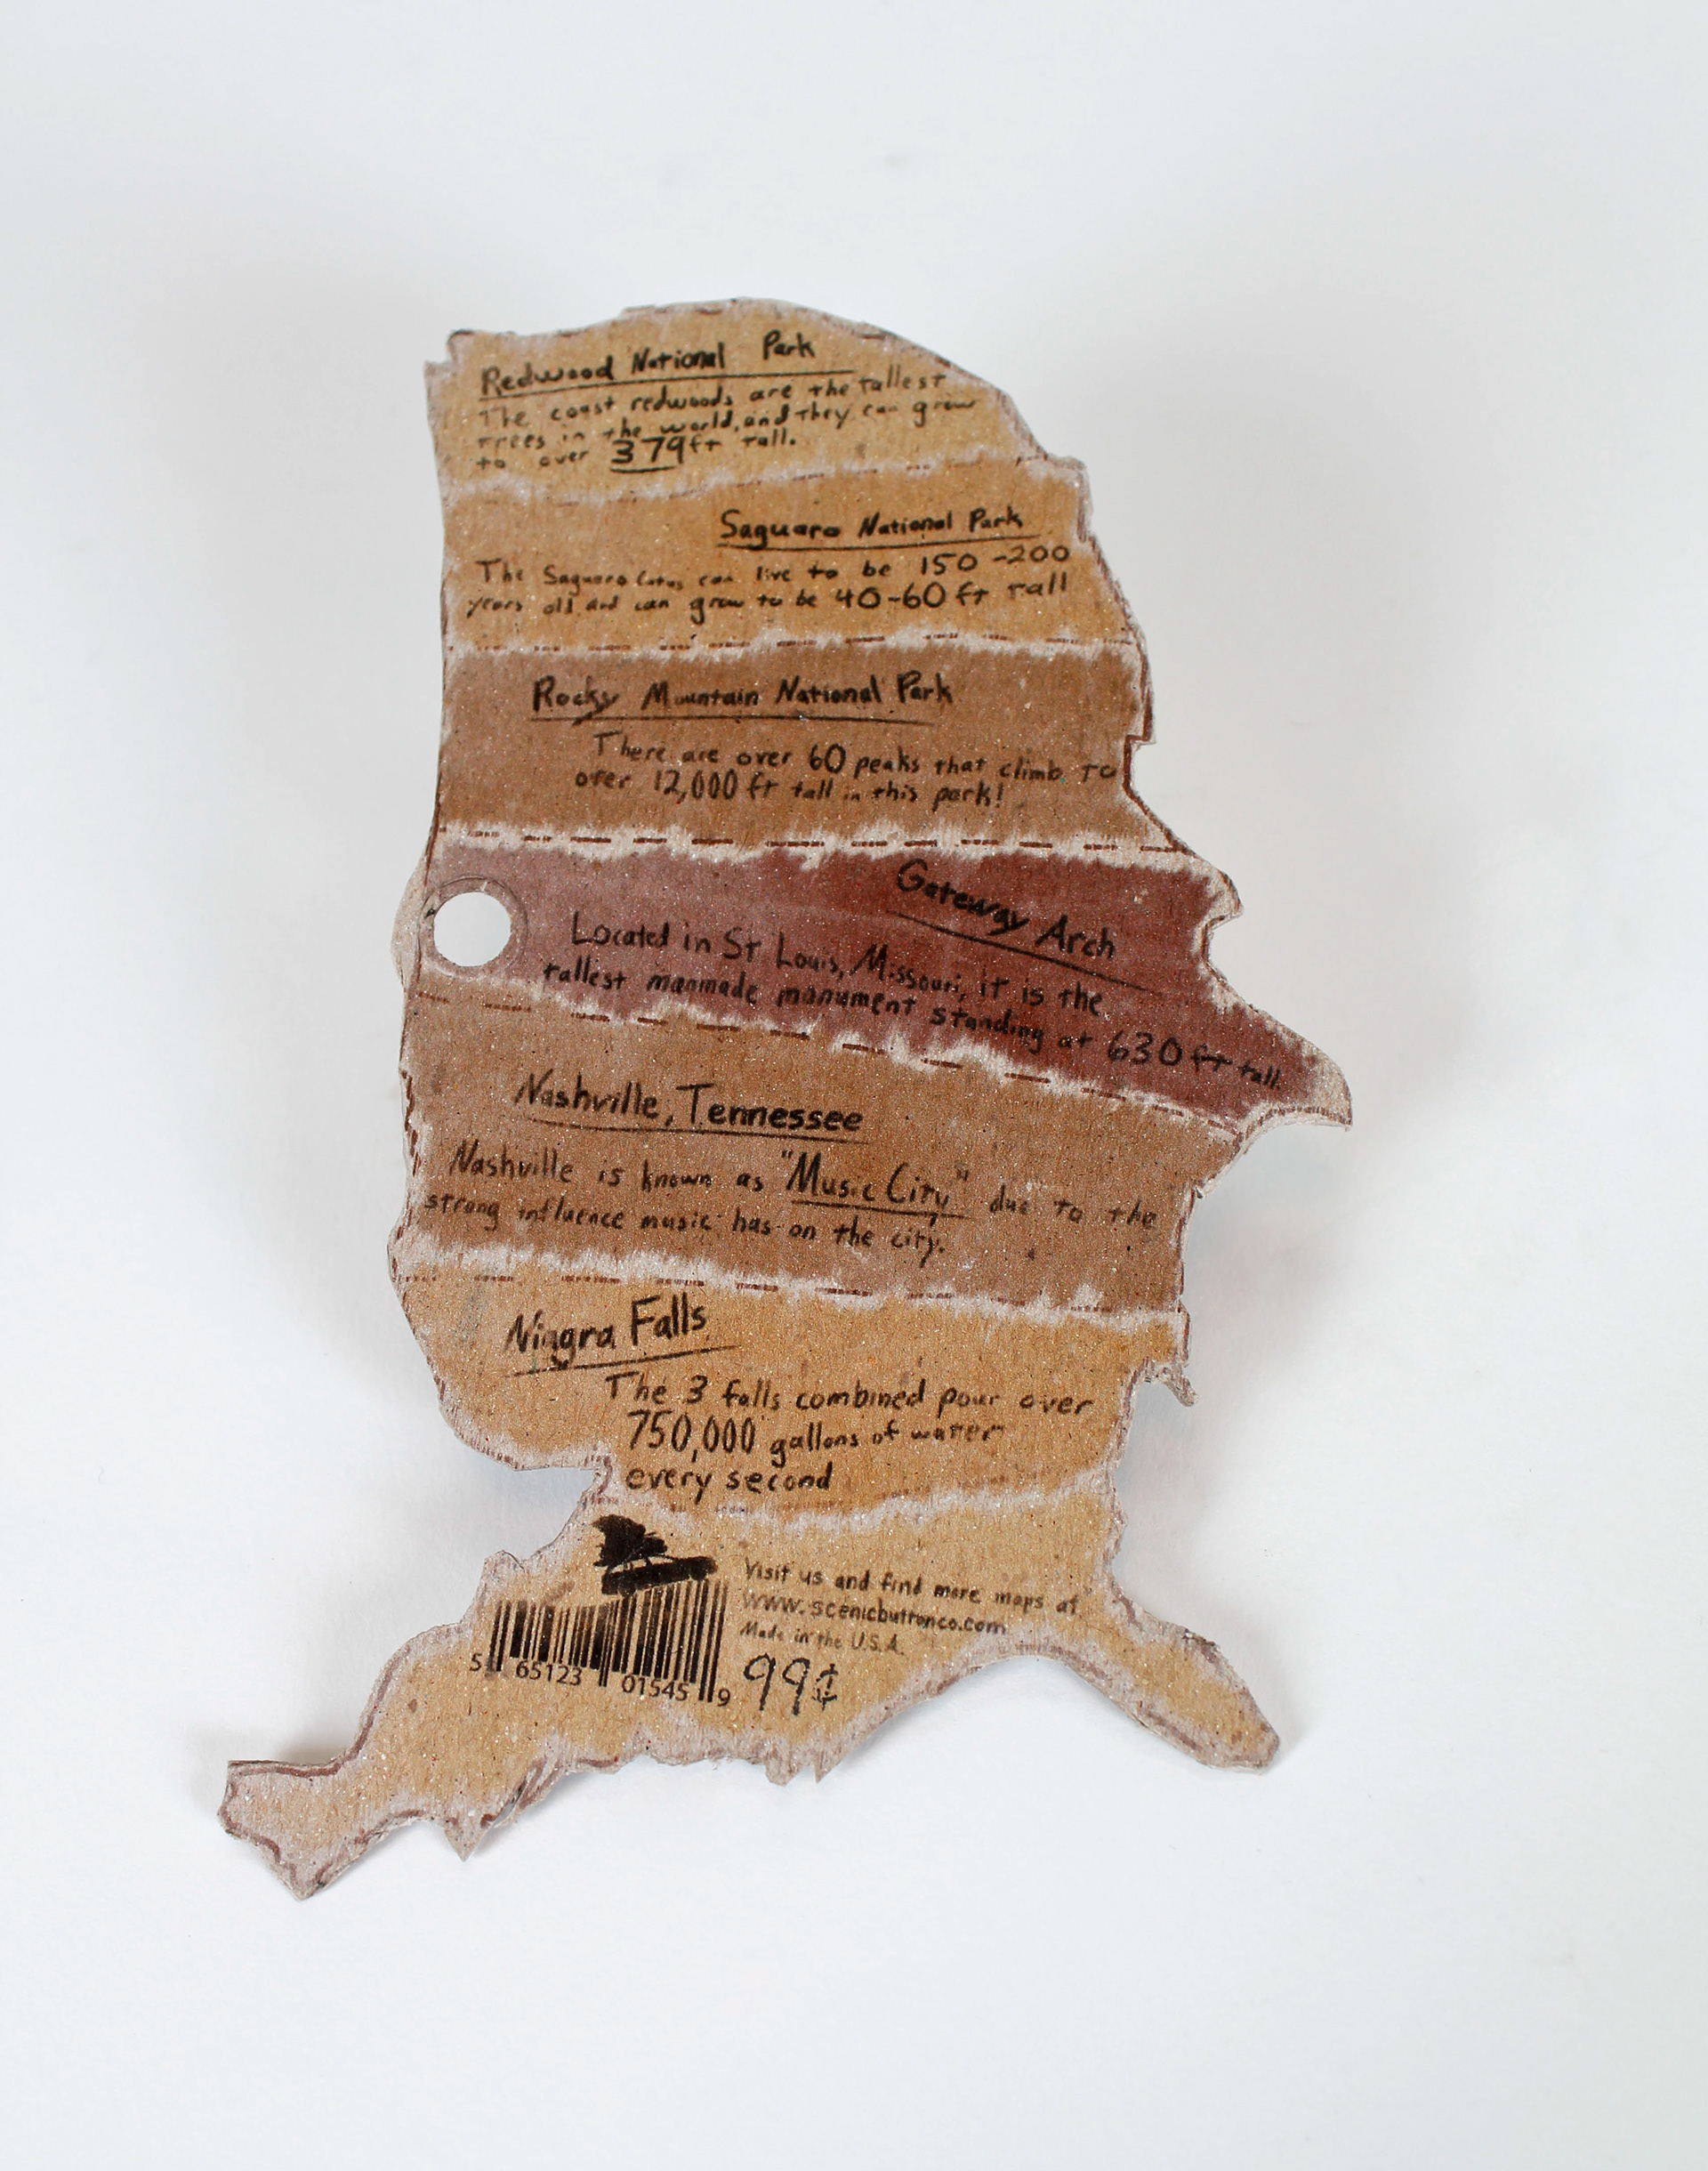 Redwood National Park
The coast redwoods are the tallest
trees in the world, and they can grow
to over 379ft tall.
Saguaro National Park
The Saguaro Catus can live to be 150-200
years old and can grow to be 40-60 ft tall
Rocky Mountain National Park
There are over 60 peaks that climb to
over 12,000 ft tall in this park!
Gateway Arch
Located in St Louis, Missouri, it is the
tallest manmade monument standing at 630 ft tall.
Nashville, Tennessee
Nashville is known as "Music City" due to the
strong influence music has on the city.
Niagra Falls
The 3 falls combined pour over
750,000 gallons of water
every second
Visit us and find more maps at
www.scenicbuttonco.com
Made in the U.S.A.
99¢
5 65123 01545 9